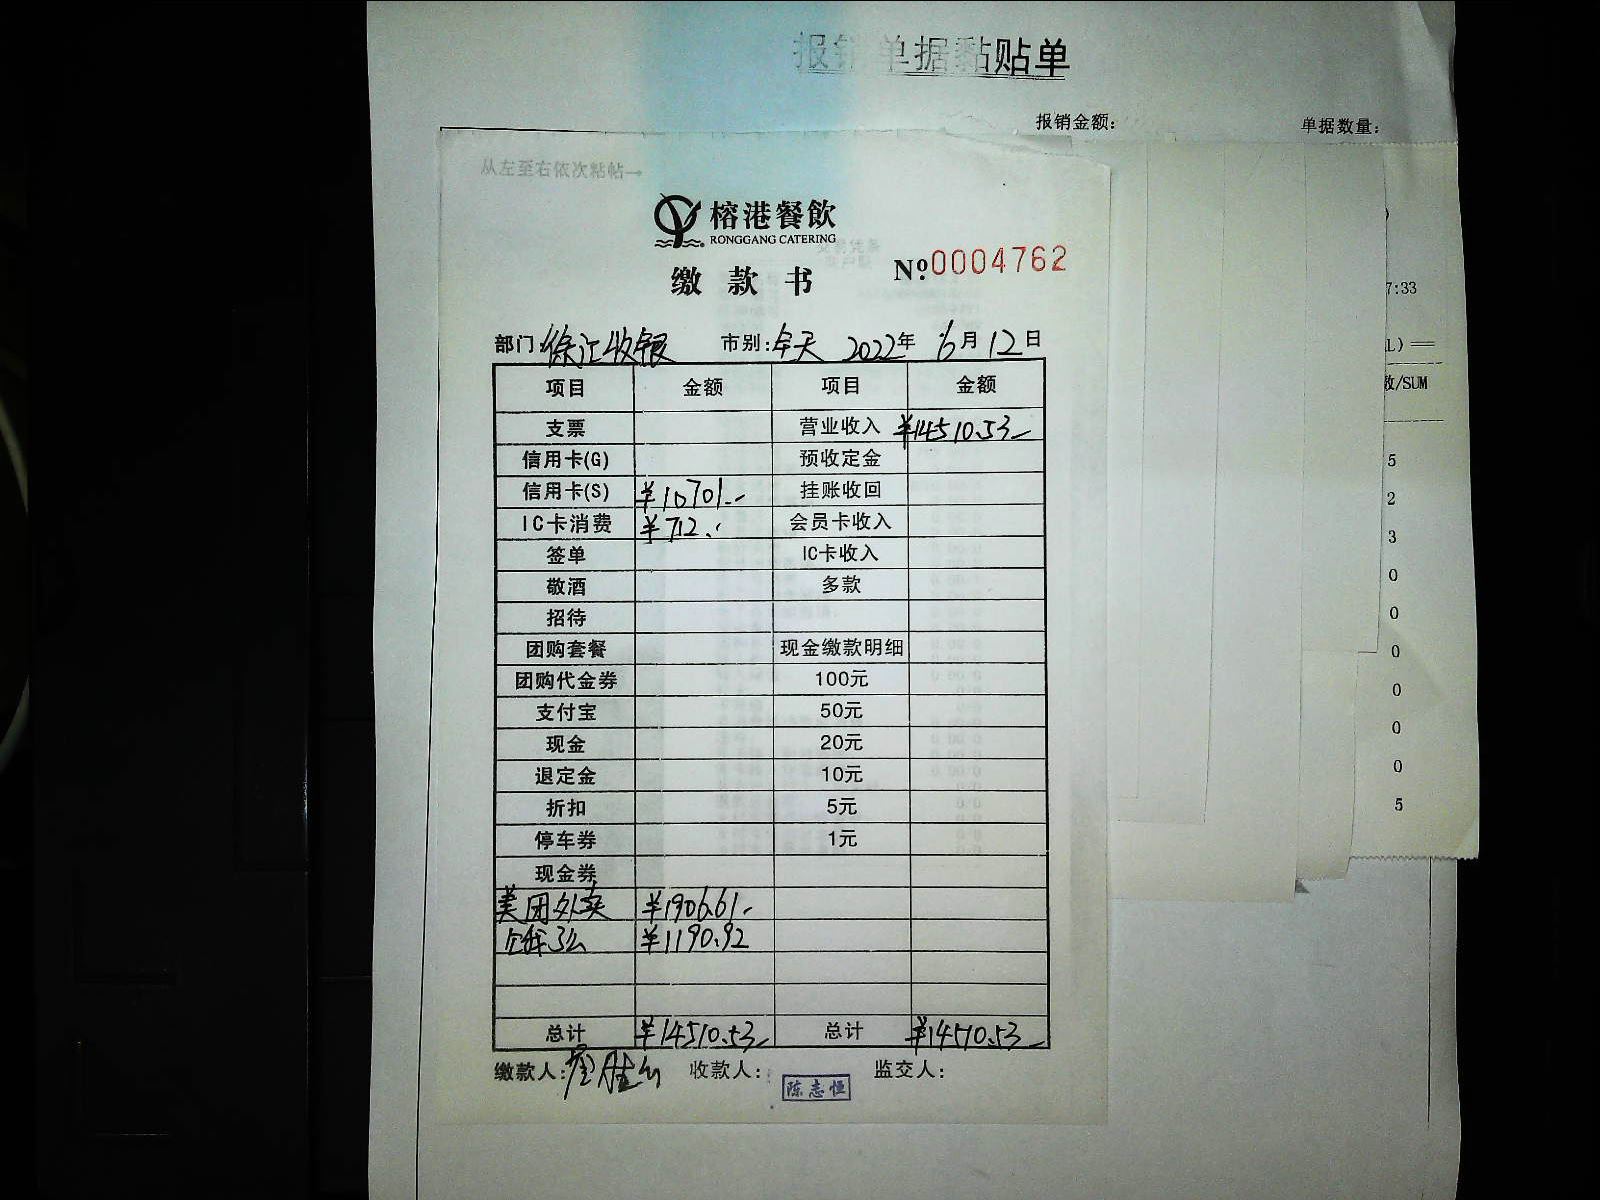 报销单据黏贴单
报销金额：
单据数量：
从左至右依次粘帖→
榕港餐飲
RONGGANG CATERING
缴款书
Nº 0004762
部门：徐汇收银 市别：今天 2022年 6月12日
项目 金额 项目 金额
支票 营业收入 ¥14510.53
信用卡(G) 预收定金
信用卡(S) ¥10701.- 挂账收回
IC卡消费 ¥712. 会员卡收入
签单 IC卡收入
敬酒 多款
招待
团购套餐 现金缴款明细
团购代金券 100元
支付宝 50元
现金 20元
退定金 10元
折扣 5元
停车券 1元
现金券
美团外卖 ¥1906.61
饿了么 ¥1190.92
总计 ¥14510.53 总计 ¥14510.53
缴款人： 收款人： 陈志恒 监交人：
7:33
L) ==
数/SUM
5
2
3
0
0
0
0
0
0
5